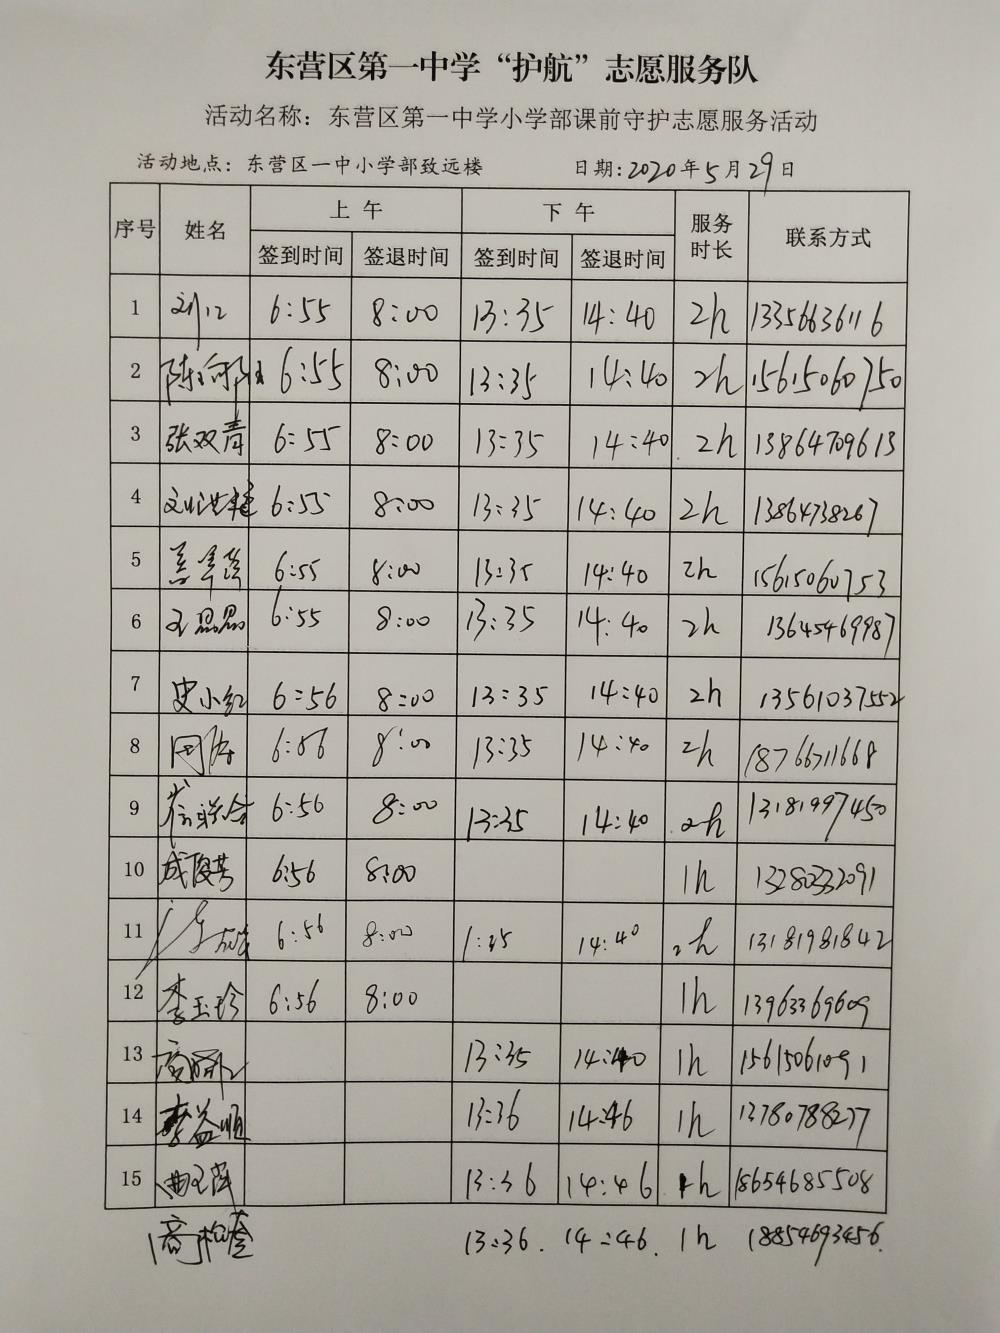 东营区第一中学“护航”志愿服务队
活动名称：东营区第一中学小学部课前守护志愿服务活动
活动地点：东营区一中小学部致远楼 日期:2020年5月29日
序号 姓名 上午 下午 服务时长 联系方式
签到时间 签退时间 签到时间 签退时间
1 6:55 8:00 13:35 14:40 2h 13356636116
2 6:55 8:00 13:35 14:40 2h 15615060750
3 张双青 6:55 8:00 13:35 14:40 2h 13864709613
4 6:55 8:00 13:35 14:40 2h 13864738267
5 6:55 8:00 13:35 14:40 2h 15615060753
6 王思思 6:55 8:00 13:35 14:40 2h 13645469987
7 史小红 6:56 8:00 13:35 14:40 2h 13561037552
8 6:56 8:00 13:35 14:40 2h 18766711668
9 6:56 8:00 13:35 14:40 2h 13181997450
10 6:56 8:00 1h 13280332091
11 6:56 8:00 1:35 14:40 2h 13181981842
12 李玉珍 6:56 8:00 1h 13963369609
13 13:35 14:40 1h 15615061091
14 李益顺 13:36 14:46 1h 13780788277
15 13:36 14:46 1h 18654685508
13:36. 14:46. 1h 18854693456.